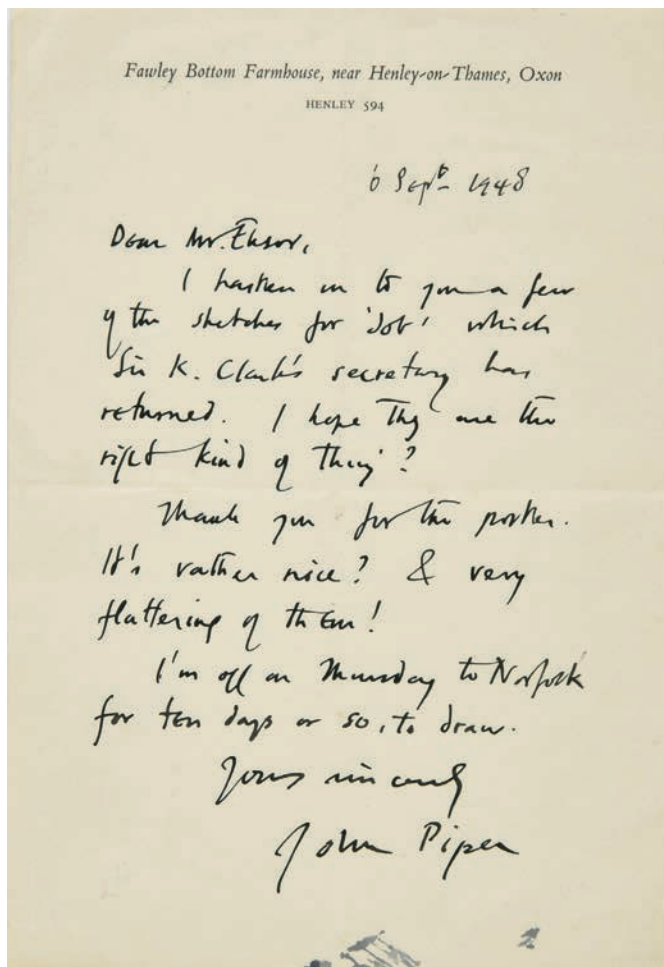 Fawley Bottom Farmhouse, near Henley-on-Thames, Oxon
HENLEY 594
6 Sept 1948
Dear Mr.
I hasten on to you a few
of the sketches for 'Job' which
Sir K. Clark's secretary has
returned. I hope they are the
right kind of thing?
Thank you for the poster.
It's rather nice? & very
flattering of them!
I'm off on Thursday to Norfolk
for ten days or so, to draw.
Yours sincerely
John Piper